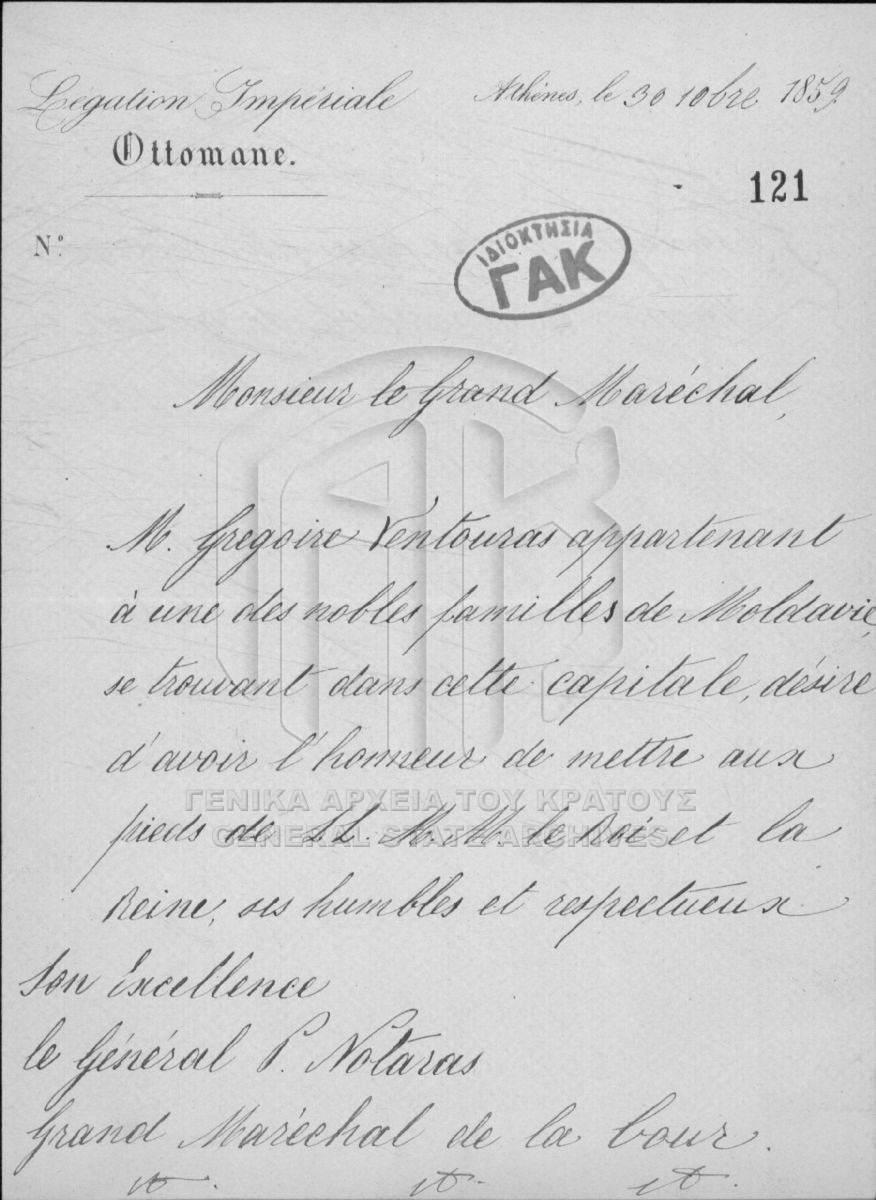 Légation Impériale
Ottomane.
Athènes, le 30 10bre 1859.
121
N°
ΙΔΙΟΚΤΗΣΙΑ
ΓΑΚ
Monsieur le Grand Maréchal,
M. Gregoire Ventouras appartenant
à une des nobles familles de Moldavie,
se trouvant dans cette capitale, désire
d'avoir l'honneur de mettre aux
pieds de LL. M.M. le Roi et la
Reine, ses humbles et respectueux
ΓΕΝΙΚΑ ΑΡΧΕΙΑ ΤΟΥ ΚΡΑΤΟΥΣ
GENERAL STATE ARCHIVES
Son Excellence
le Général P. Notaras
Grand Maréchal de la Cour.
et. et. et.